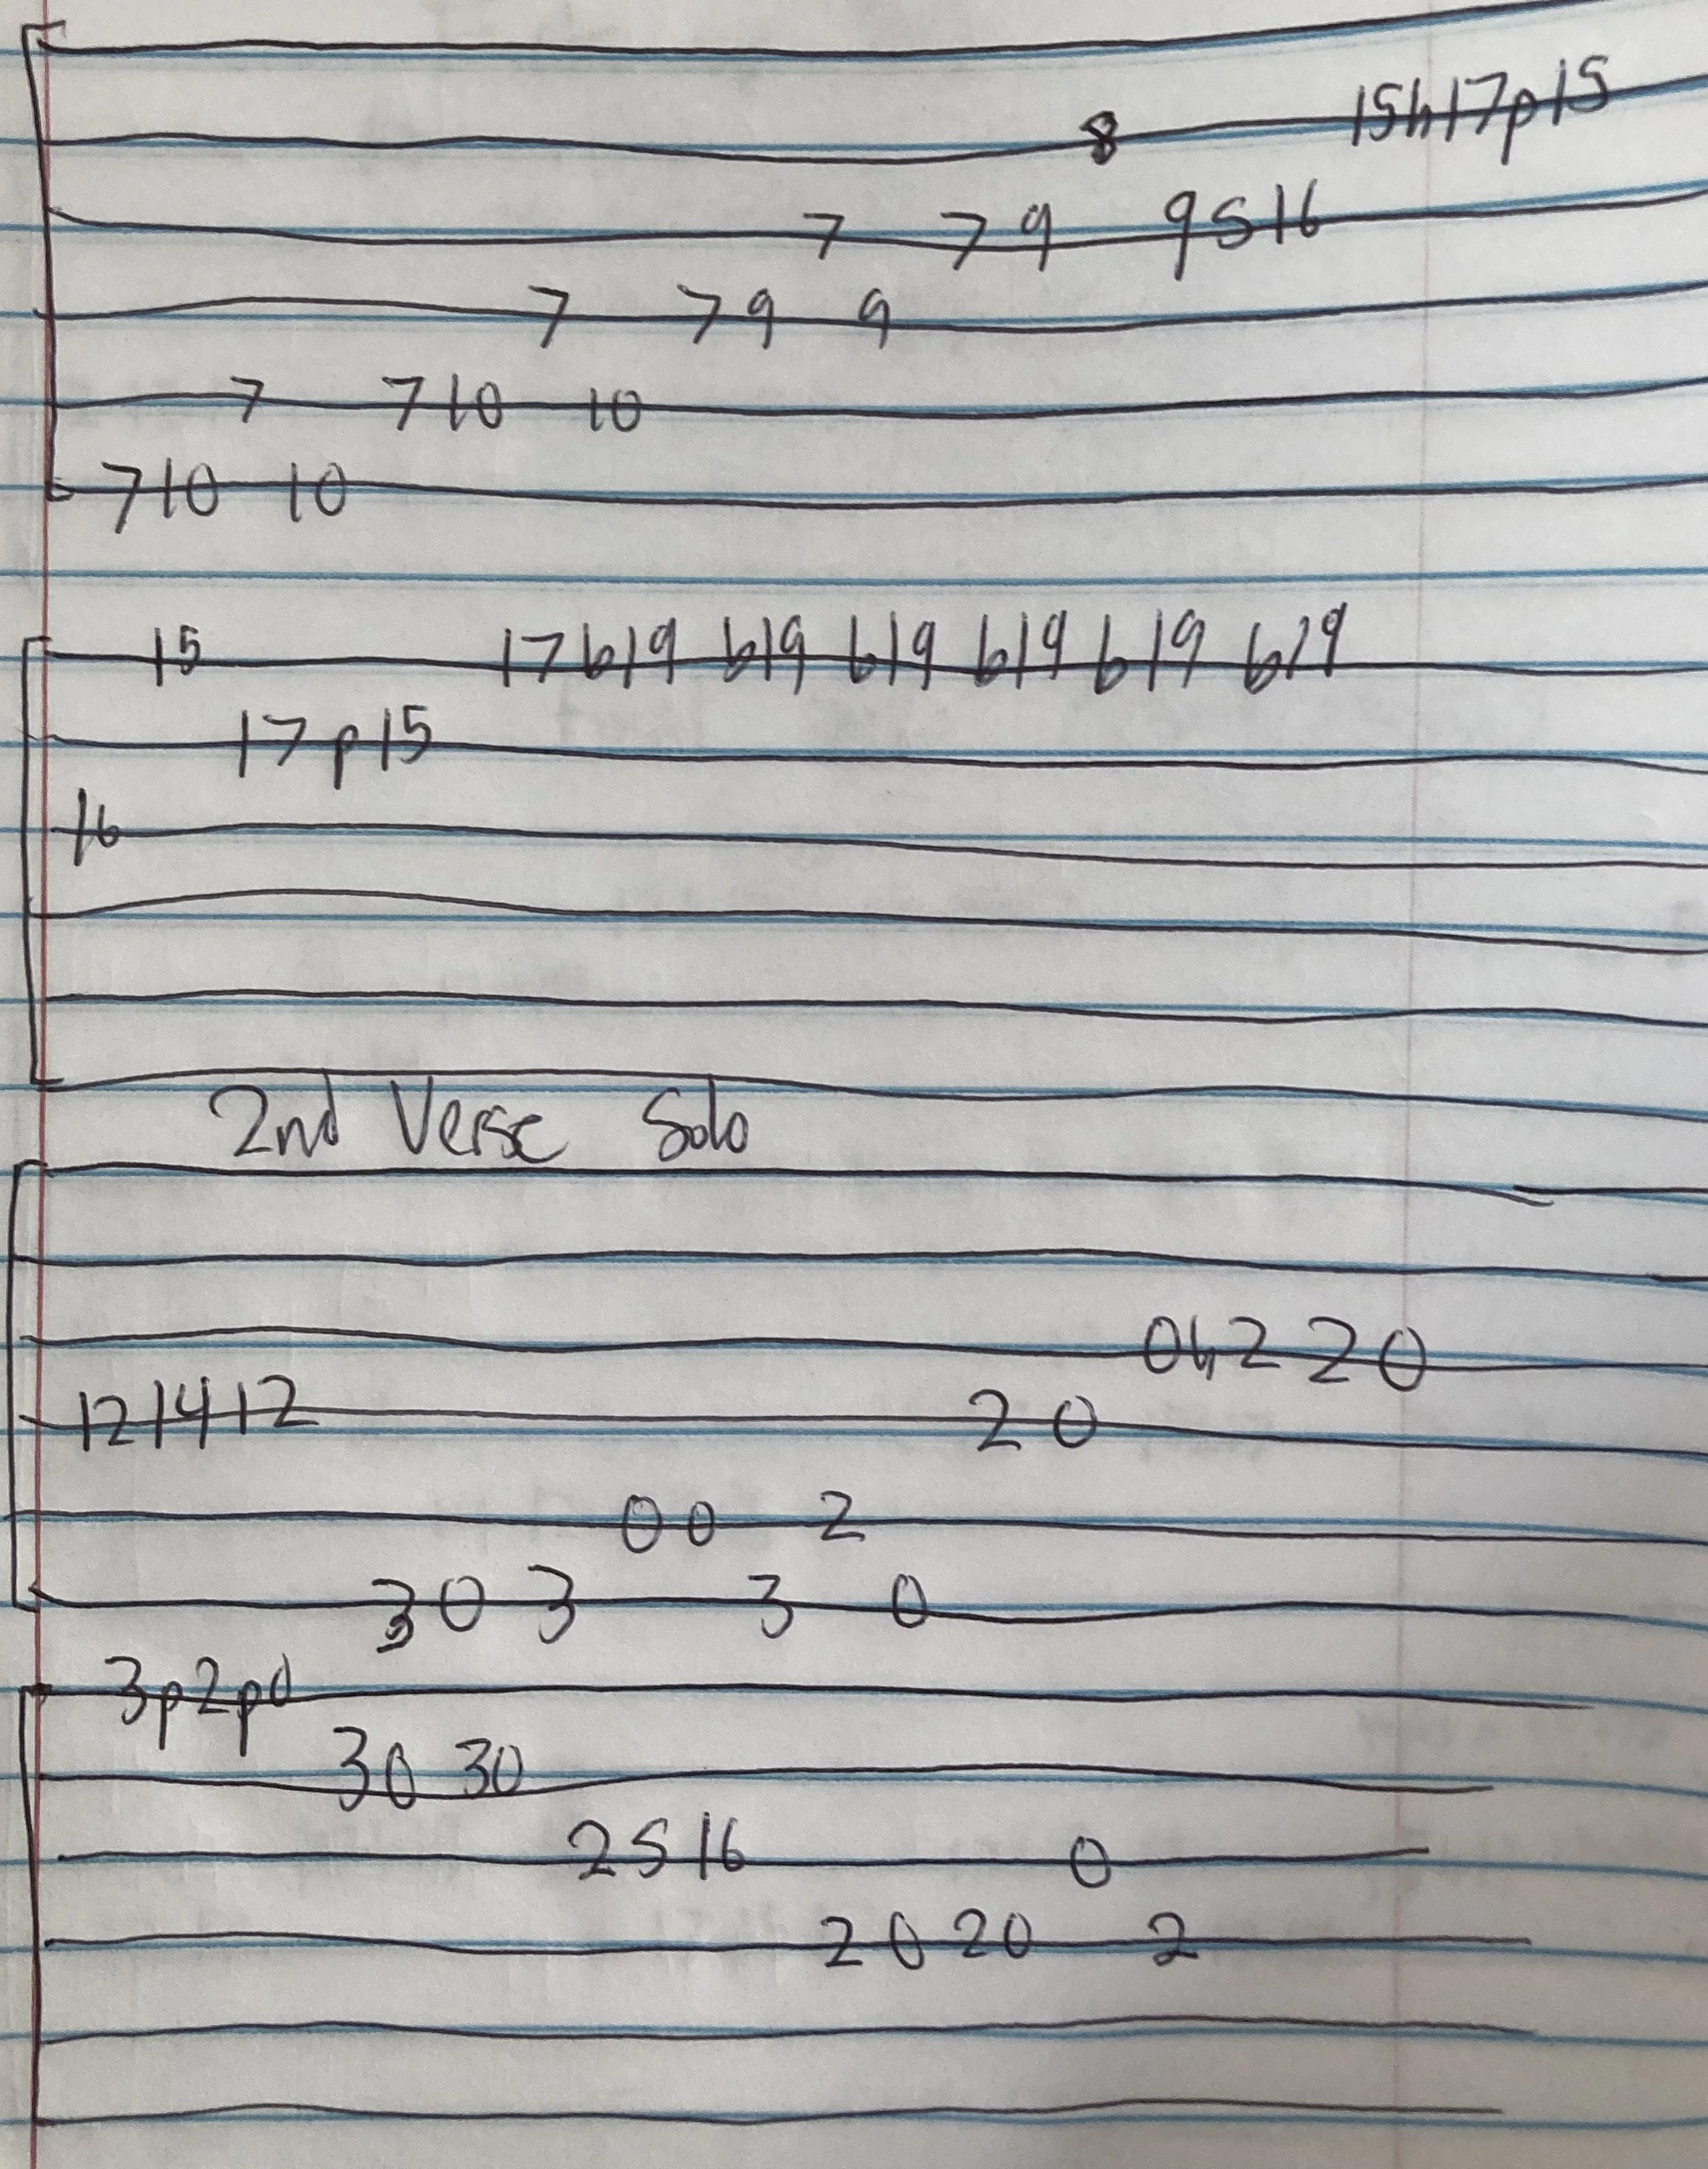 8 15h17p15
7 7 9 9 S 16
7 7 9 9
7 7 10 10
7 10 10
15 17 b19 b19 b19 b19 b19 b19
17 p 15
16
2nd Verse Solo
0h2 2 0
12 14 12 2 0
0 0 2
3 0 3 3 0
3p2p0
3 0 3 0
2 S 16 0
2 0 2 0 2